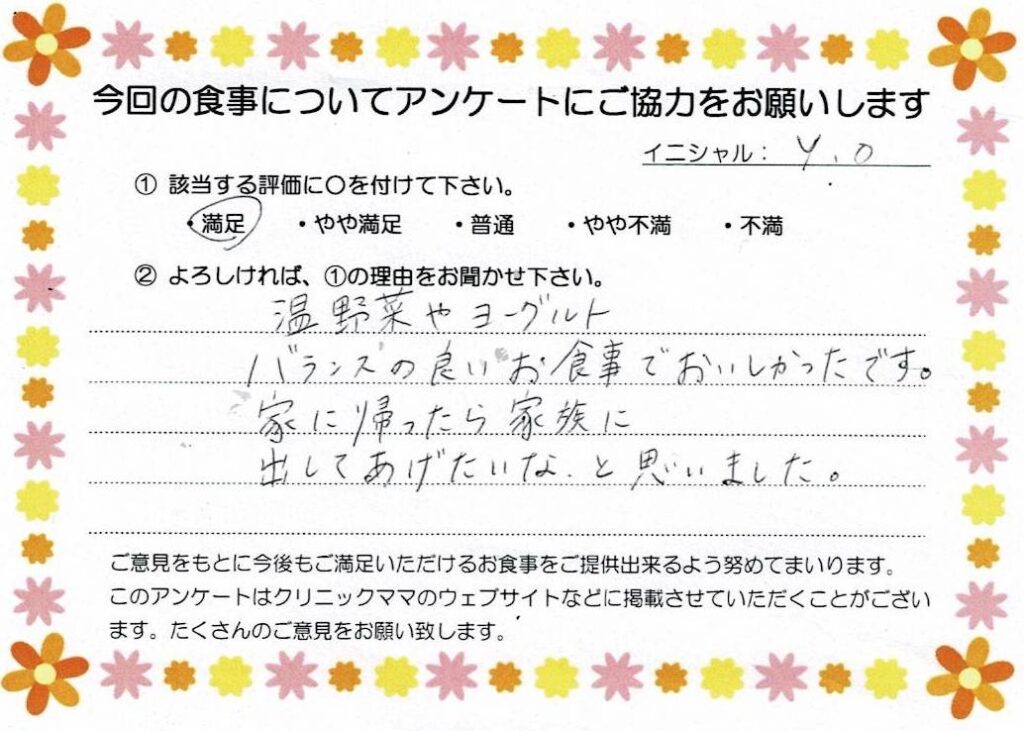 今回の食事についてアンケートにご協力をお願いします
イニシャル： Y.O
① 該当する評価に〇を付けて下さい。
・満足 ・やや満足 ・普通 ・やや不満 ・不満
② よろしければ、①の理由をお聞かせ下さい。
温野菜やヨーグルト
バランスの良いお食事でおいしかったです。
家に帰ったら家族に
出してあげたいな、と思いました。
ご意見をもとに今後もご満足いただけるお食事をご提供出来るよう努めてまいります。
このアンケートはクリニックママのウェブサイトなどに掲載させていただくことがござい
ます。たくさんのご意見をお願い致します。